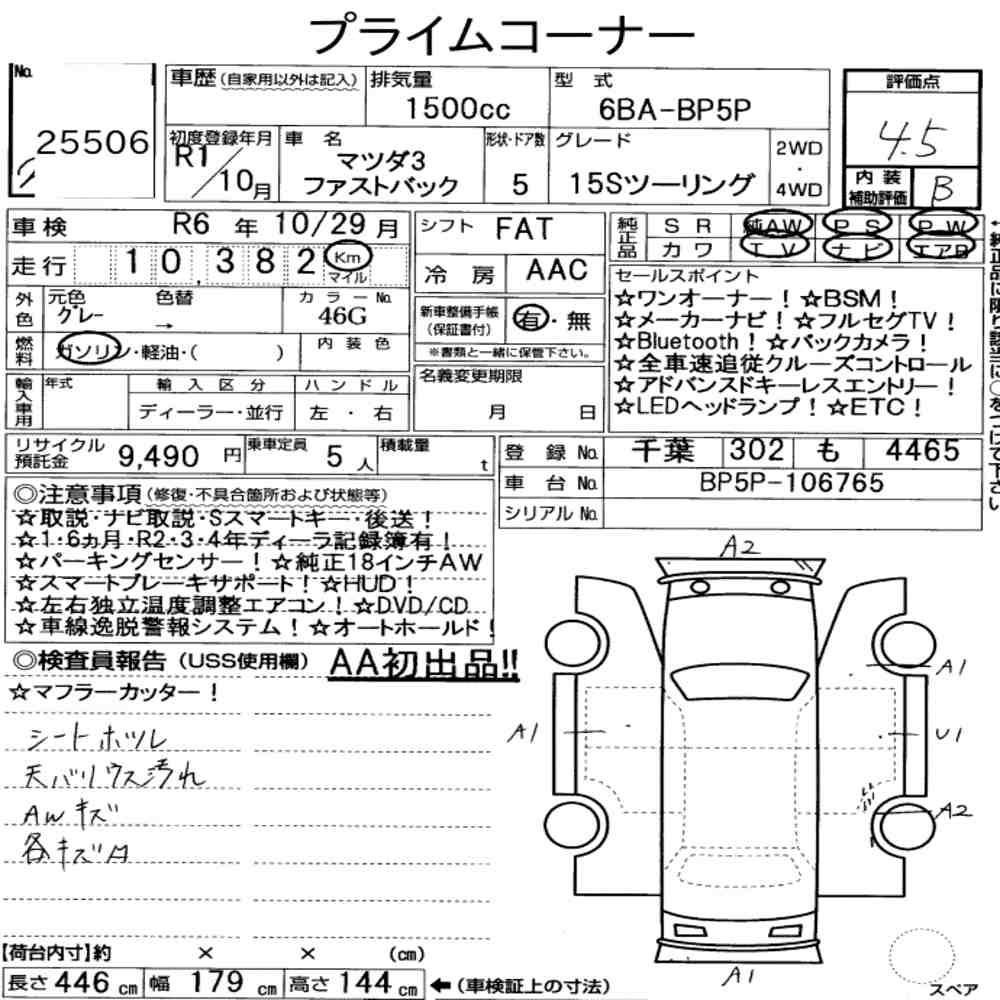 プライムコーナー
No.
25506
車歴 (自家用以外は記入)
排気量
1500cc
型 式
6BA-BP5P
評価点
4.5
内装補助評価
B
初度登録年月
R1/10月
車 名
マツダ3
ファストバック
形状・ドア数
5
グレード
15Sツーリング
2WD
・
4WD
車検 R6 年 10/29 月
走行 10,382 Km
マイル
シフト FAT
冷房 AAC
純正品
SR 純AW PS PW
カワ TV ナビ エアB
←純正品に限り該当に○をつけて下さい
外色
元色 色替 カラーNo.
グレー → 46G
燃料
ガソリン・軽油・( )
内装色
新車整備手帳
(保証書付)
有・無
※書類と一緒に保管下さい。
セールスポイント
☆ワンオーナー!☆BSM!
☆メーカーナビ!☆フルセグTV!
☆Bluetooth!☆バックカメラ!
☆全車速追従クルーズコントロール
☆アドバンスドキーレスエントリー!
☆LEDヘッドランプ!☆ETC!
輸入車用
年式 輸入区分 ハンドル
ディーラー・並行 左・右
名義変更期限
月 日
リサイクル預託金 9,490 円
乗車定員 5 人
積載量 t
登録No. 千葉 302 も 4465
車台No. BP5P-106765
シリアルNo.
◎注意事項(修復・不具合箇所および状態等)
☆取説・ナビ取説・Sスマートキー・後送!
☆1・6ヵ月・R2・3・4年ディーラ記録簿有!
☆パーキングセンサー!☆純正18インチAW
☆スマートブレーキサポート!☆HUD!
☆左右独立温度調整エアコン!☆DVD/CD
☆車線逸脱警報システム!☆オートホールド!
◎検査員報告(USS使用欄) AA初出品!!
☆マフラーカッター!
シートホツレ
天バリウス汚れ
AWキズ
各キズA
A2
A1
A1
U1
A2
A1
スペア
【荷台内寸】約 × × (cm)
長さ 446 cm 幅 179 cm 高さ 144 cm ←(車検証上の寸法)